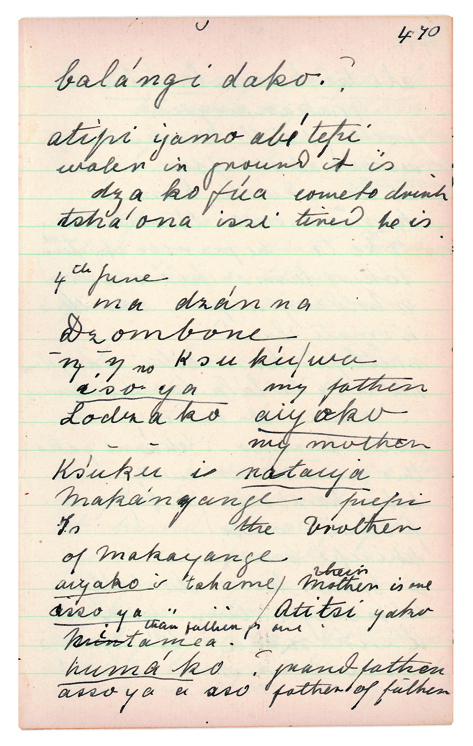 470
balángi dako. ?
atipi iyamo abétefi
water in ground it is
dza ko fúa come to drink
tshá'ona iszi tired he is
4th June
ma dzánna
Dzombone
no Ksukú/wa
iso ya my father
Lodzako aiyoko
my mother
Ksukú is nataya
Makányange pepi
Is the brother
of Makayange
aiyako is tahame/ their Mother is one
isso ya " " / Atitsi yako
than father is one
tamea.
numáko ? grandfather
assoya a aso father of father